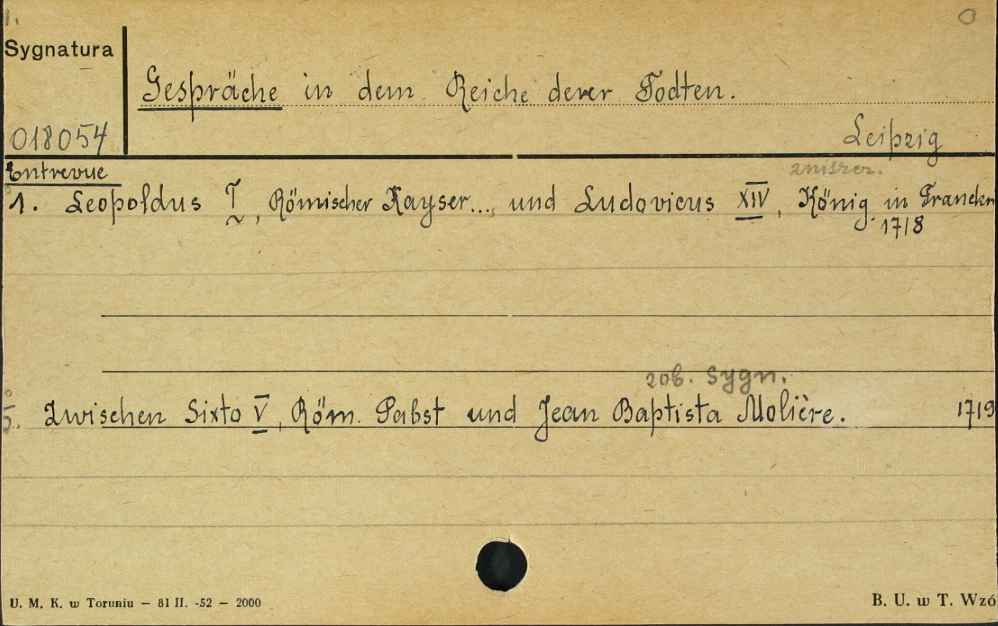 1.
Sygnatura
Gespräche in dem Reiche derer Todten.
018054
Leipzig
Entrevue
zniszcz.
1. Leopoldus I, Römischer Kayser..., und Ludovicus XIV, König in Franckr
1718
zob. Sygn.
5. Zwischen Sixto V, Röm. Pabst und Jean Baptista Molière. 1719
U. M. K. w Toruniu — 81 II. -52 — 2000
B. U. w T. Wzó